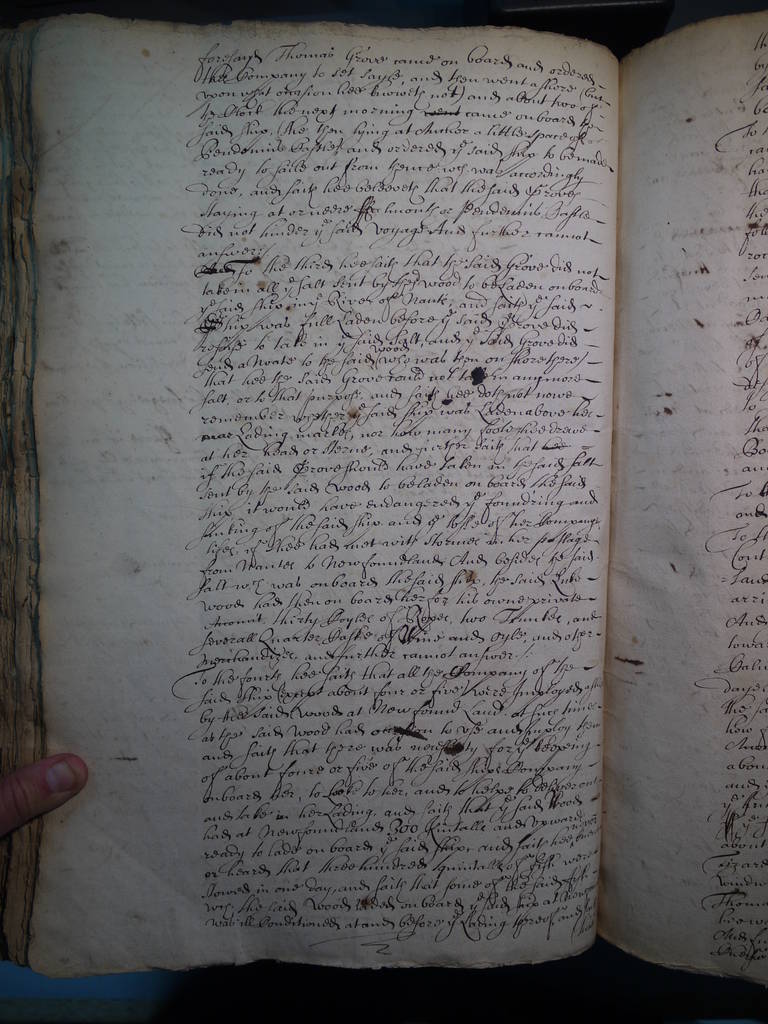 foresayd Thomas Grove came on board and ordered
the Company to set sayle, and then went ashore (but
upon what occasion hee knoweth not) and about two of
the Clock the next morning went came on board the
said ship, (she then lying at Anchor a little space of
Pendennis Castle) and ordered ye said ship to be made
ready to saile out from thence wch was accordingly
done, and saith hee beleeveth that the said Groves
staying at or neere Falmouth or Pendennis Castle
did not hinder ye said voyage And further cannot
answer
And To the third hee saith that the said Grove did not
take in all ye salt sent by the wood to be laden on board
ye said ship in ye River of Nants, and saith ye said
ship was full laden before ye said Grove did
refuse to take in ye said salt, and ye said Grove did
send a Noate to the said wood (who was then on shore there)
that hee the said Grove could not take in any more
salt, or to that purpose, and saith hee doth not nowe
remember whether ye said ship was Laden above her
Lading markes, nor how many foote shee drewe
at her head or sterne, and further saith that
if the said Grove should have taken in the said salt
sent by the said Wood to be laden on board the said
ship it would have endangered ye foundring and
sinking of the said ship and ye losse of her Companys
lifes, if shee had met with stormes in her passage
from Nantes to Newfoundland And besides the said
salt wch was on board the said ship, the said Luke
wood had then on board her for his owne private
Account thirty Coyles of Ropes, two Trunkes, and
severall Quarter Caske of Wine and oyle, and other
Merchandizes, and further cannot answer
To the fourth hee saith that all the Company of the
said ship (except about four or five) were imployed
by the said Wood at New found Land at such times
as the said Wood had occasion to use and imploy them
and saith that there was necessity for ye keeping
of about foure or five of the said ships Company
onboard her, to Looke to her, and to helpe to deliver out
and take in her Lading, and saith that ye said Wood
had at Newfoundland 300 Quintalls and upwards
ready to lade on board ye said ship, and saith hee
or heard that three hundred quintalls of fish were
stowed in one day, and saith that some of the said fish
wch the said Wood laded on board ye said ship at
was ill Conditioned at and before ye Lading thereof, and